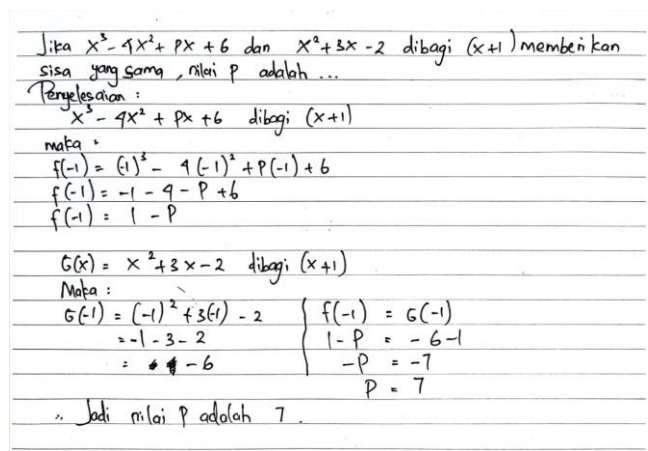 Jika x³ - 4x² + Px + 6 dan x² + 3x - 2 dibagi (x+1) memberikan
sisa yang sama, nilai P adalah ...
Penyelesaian :
x³ - 4x² + Px + 6 dibagi (x+1)
maka :
f(-1) = (-1)³ - 4(-1)² + P(-1) + 6
f(-1) = -1 - 4 - P + 6
f(-1) = 1 - P
G(x) = x² + 3x - 2 dibagi (x+1)
Maka :
G(-1) = (-1)² + 3(-1) - 2
= -1 - 3 - 2
= - 6
f(-1) = G(-1)
1 - P = - 6 - 1
-P = -7
P = 7
∴ Jadi nilai P adalah 7 .